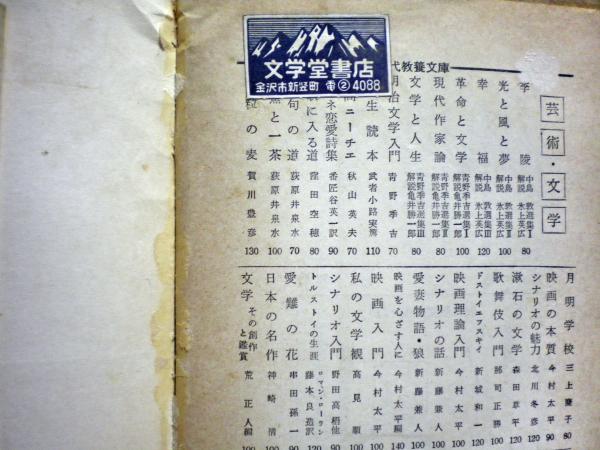 文学堂書店
金沢市新竪町 電②4088
代教養文庫
芸術・文学
李陵 中島敦選集Ⅰ 解説 氷上英広 80
光と風と夢 中島敦選集Ⅱ 解説 氷上英広 100
幸福 中島敦選集Ⅲ 解説 氷上英広 120
革命と文学 青野季吉選集Ⅰ 解説 亀井勝一郎 100
現代作家論 青野季吉選集Ⅱ 解説 亀井勝一郎 80
文学と人生 青野季吉選集Ⅲ 解説 亀井勝一郎 80
明治文学入門 青野季吉 70
生読本 武者小路実篤 110
ニーチエ 秋山英夫 70
ネ恋愛詩集 番匠谷英一訳 90
に入る道 窪田空穂 80
句の道 荻原井泉水 70
と一茶 荻原井泉水 100
粒の麦 賀川豊彦 130
月明学校 三上慶子 80
映画の本質 今村太平 90
シナリオの魅力 北川冬彦 120
漱石の文学 森田草平 120
歌舞伎入門 郡司正勝 100
ドストイエフスキイ 新城和一 120
映画理論入門 今村太平 100
シナリオの話 新藤兼人 100
愛妻物語・狼 新藤兼人 100
映画を心ざす人に 今村太平編 140
映画入門 今村太平 100
私の文学観 高見順 100
シナリオ入門 野田高梧他 90
トルストイの生涯 ロマン・ローラン 蔵本良造訳 120
愛難の花 串田孫一 90
日本の名作 神崎清 100
文学 その創作と鑑賞 荒正人編 100